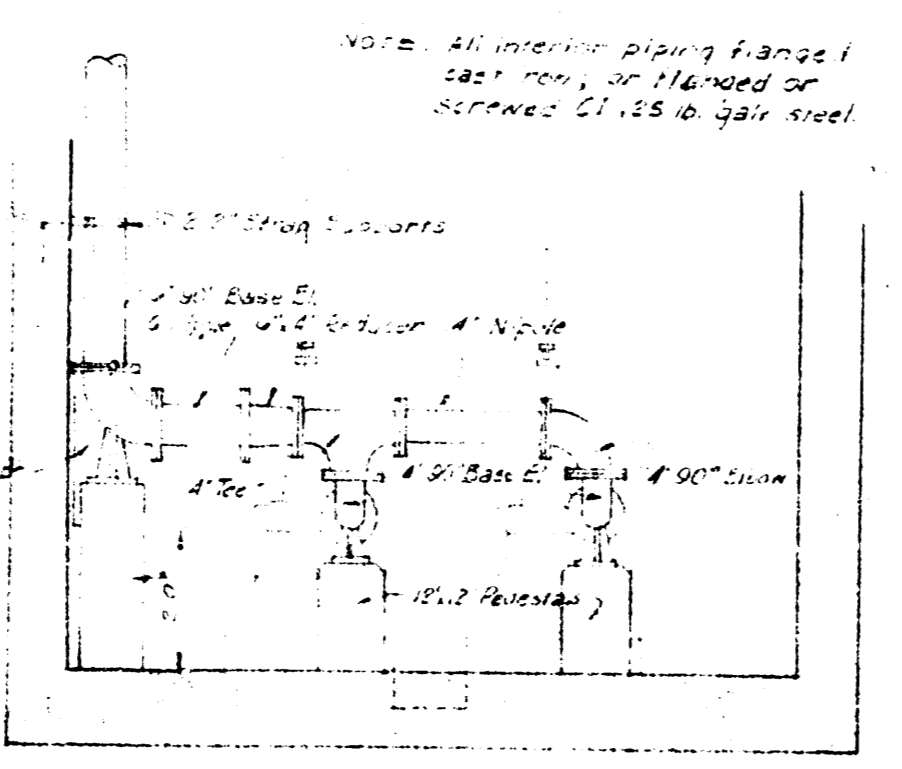 Note: All interior piping flanged
cast iron, or flanged or
screwed Cl. 125 lb. galv. steel.
2" Strap Supports
6" 90° Base El.
6"x4" Reducer 4" Nipple
4" Tee
4" 90° Base El.
4" 90° Elbow
12"x12" Pedestals